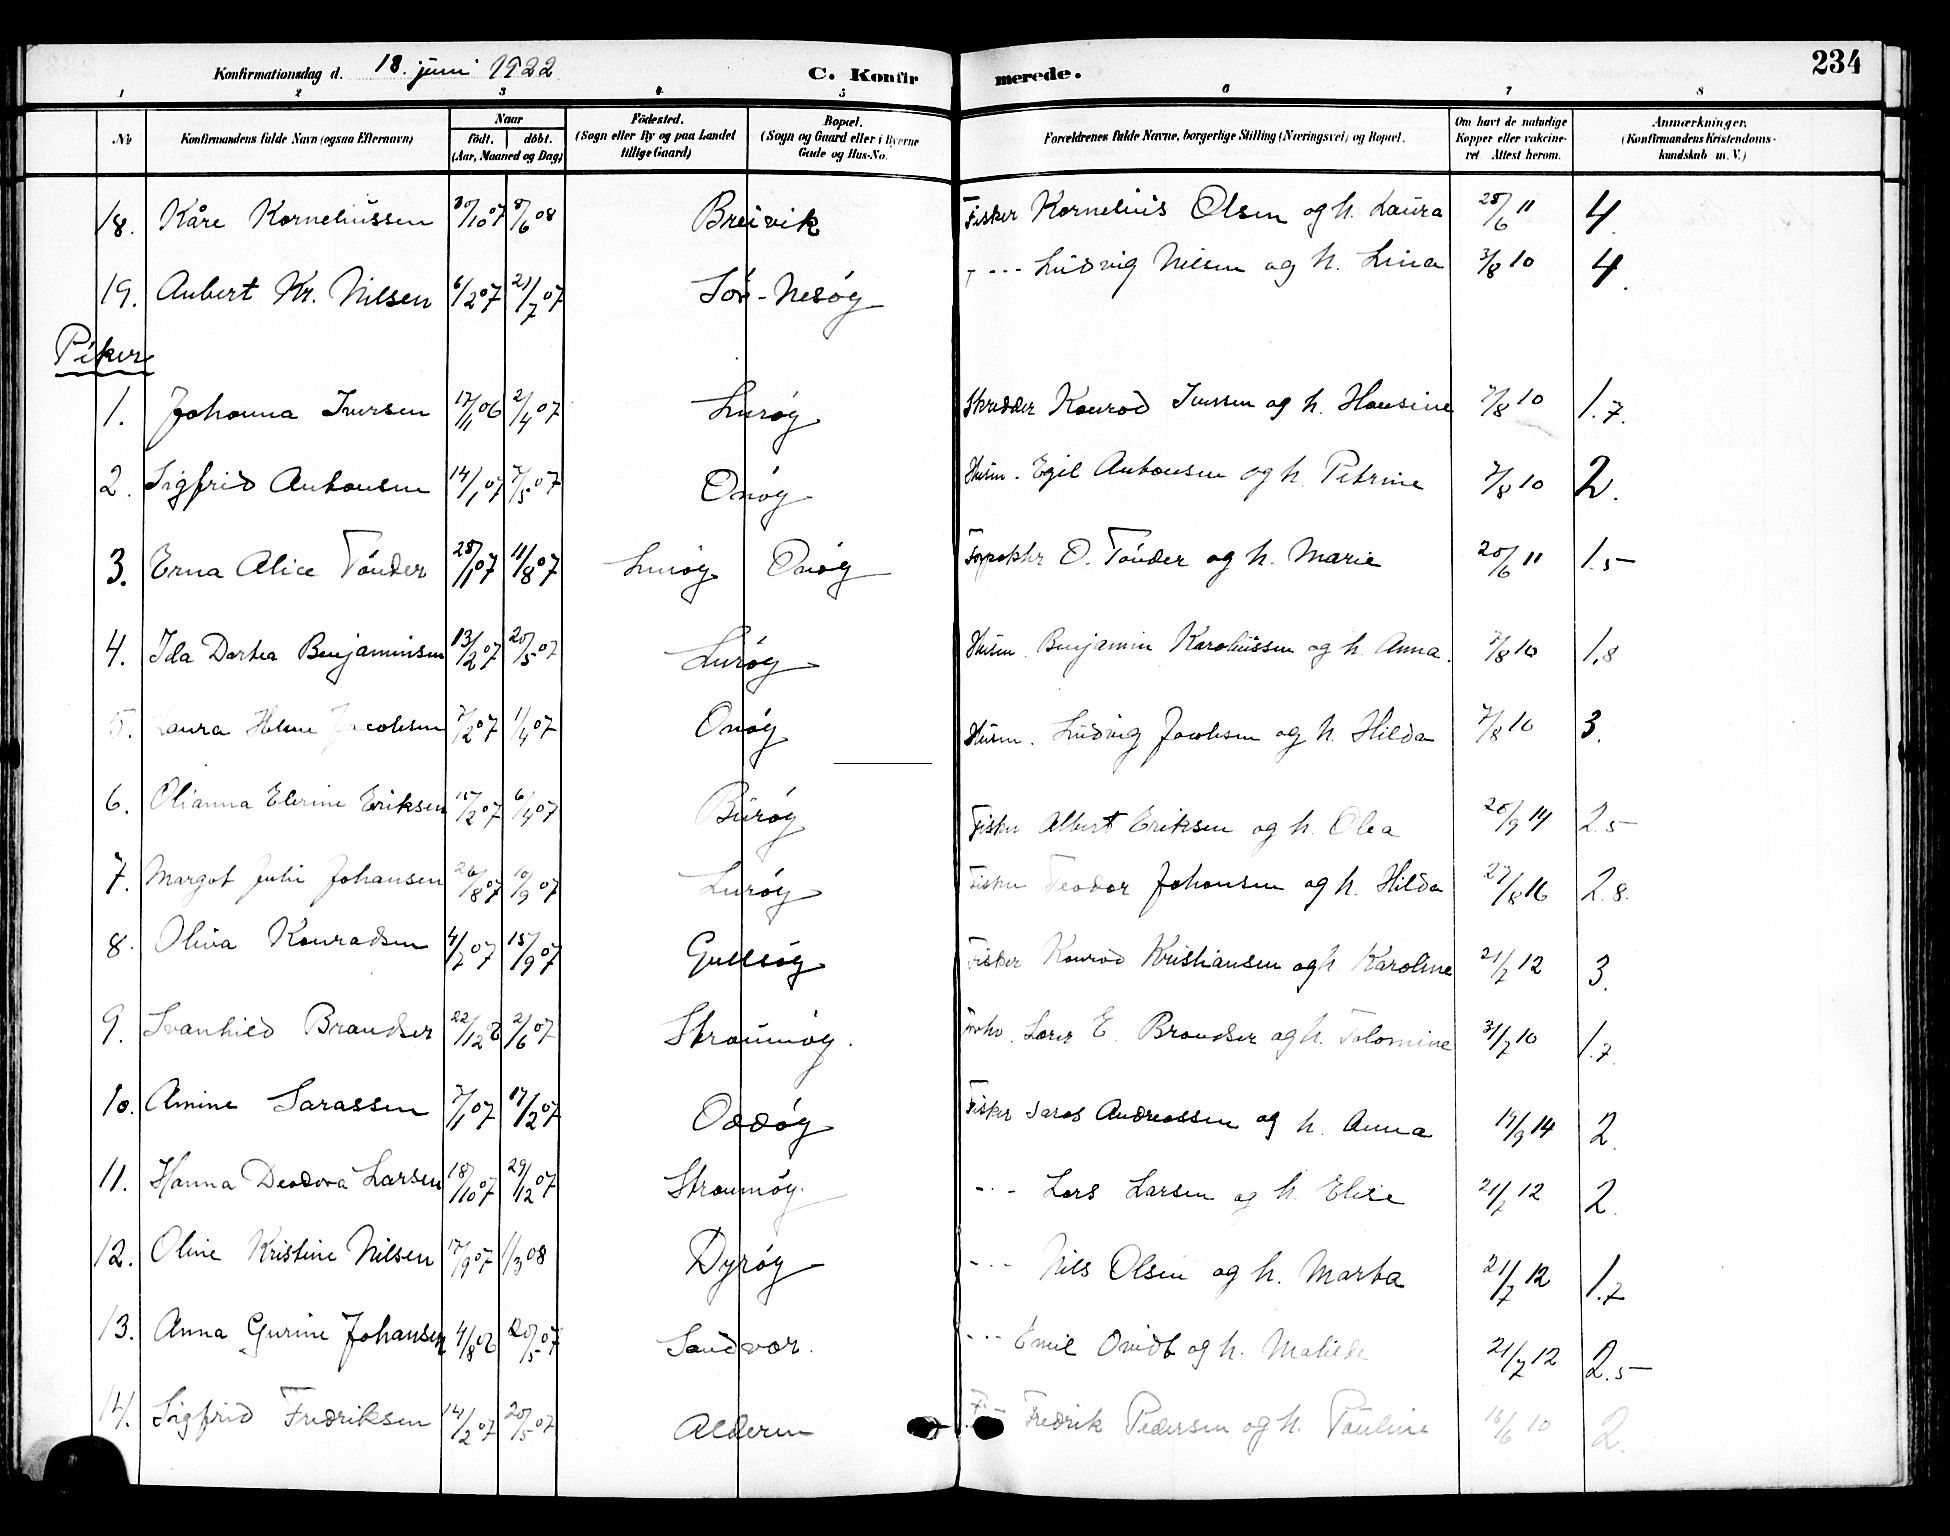 Konfirmationsdag d. 18. juni 1922 C. Konfirmerede. 234
1 2 3 4 5 6 7 8
No Konfirmandens fulde Navn (ogsaa Efternavn) Naar født. døbt. (Aar, Maaned og Dag) Fødested. (Sogn eller By og paa Landet tillige Gaard) Bopæl. (Sogn og Gaard eller i Byerne Gade og Hus-No. Forældrenes fulde Navne, borgerlige Stilling (Næringsvei) og Bopæl. Om havt de naturlige Kopper eller vakcineret. Attest herom. Anmærkninger, (Konfirmandens Kristendomskundskab m. V.)
18. Kåre Korneliussen 30/10 07 8/6 08 Breivik Fisker Kornelius Olsen og h. Laura 25/6 11 4.
19. Aubert Kr. Nilsen 6/2 07 21/7 07 Sør-Nesøy - - - Ludvig Nilsen og h. Lina 3/8 10 4.
Piker
1. Johanna Iversen 17/11 06 2/4 07 Lurøy Skredder Konrad Iversen og h. Hansine 7/8 10 1.7.
2. Sigfrid Antonsen 14/1 07 7/5 07 Onøy Husm. Egil Antonsen og h. Petrine 7/8 10 2.
3. Erna Alice Tønder 28/1 07 11/8 07 Lurøy Onøy O. Tønder og h. Marie 20/6 11 1.5
4. Ida Dortea Benjaminsen 13/2 07 20/5 07 Lurøy Husm. Benjamin Karoliussen og h. Anna. 7/8 10 1,8
5. Laura Helene Jacobsen 7/2 07 1/4 07 Onøy Husm. Ludvig Jacobsen og h. Hilda 7/8 10 3.
6. Olianna Elerine Eriksen 15/2 07 6/4 07 Burøy Fisker Albert Eriksen og h. Olea 20/9 14 2.5
7. Margot Julie Johansen 26/8 07 10/9 07 Lurøy Fisker Teodor Johansen og h. Hilda 27/8 16 2.8.
8. Oliva Konradsen 4/7 07 15/9 07 Gullsøy Fisker Konrad Kristiansen og h. Karoline 21/7 12 3.
9. Svanhild Brandser 22/12 6 2/6 07 Straumøy. Lærer E. Brandser og h. Tolomine 31/7 10 1.7.
10. Amine Sarassen 7/1 07 17/2 07 Oddøy Fisker Saras Andreassen og h. Anna 19/9 14 2.
11. Hanna Deodora Larsen 18/10 07 29/12 07 Straumøy. - - - Lars Larsen og h. Elise 21/7 12 2.
12. Oline Kristine Nilsen 17/9 07 1/3 08 Dyrøy - - - Nils Olsen og h. Marta 21/7 12 1.7
13. Anna Gurine Johansen 4/8 06 20/5 07 Sandvær. - - - Emil Ovidt og h. Matilde 21/7 12 2.5
14. Sigfrid Fredriksen 14/2 07 20/5 07 Alderen F. - Fredrik Pedersen og h. Pauline 16/6 10 2.